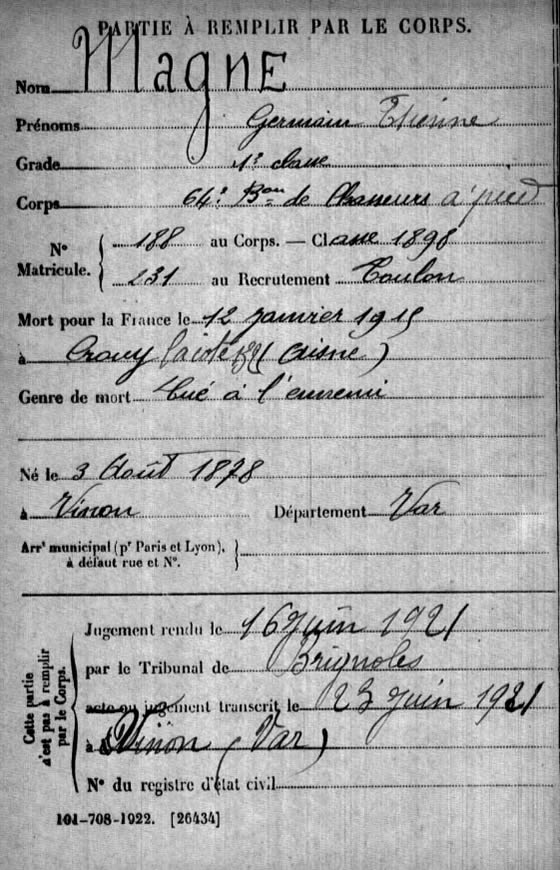 PARTIE À REMPLIR PAR LE CORPS.
Nom MagnE
Prénoms Germain Etienne
Grade 1e classe
Corps 64e Bon de Chasseurs à pied
No Matricule. 188 au Corps. — Classe 1898
231 au Recrutement Toulon
Mort pour la France le 12 Janvier 1915
à Crouy la côte (Aisne)
Genre de mort Tué à l'ennemi
Né le 3 Août 1878
à Vinon Département Var
Arrt municipal (pr Paris et Lyon), à défaut rue et No.
Cette partie n'est pas à remplir par le Corps.
Jugement rendu le 16 Juin 1921
par le Tribunal de Brignoles
acte ou jugement transcrit le 23 Juin 1921
à Vinon (Var)
No du registre d'état civil
101-708-1922. [26434]